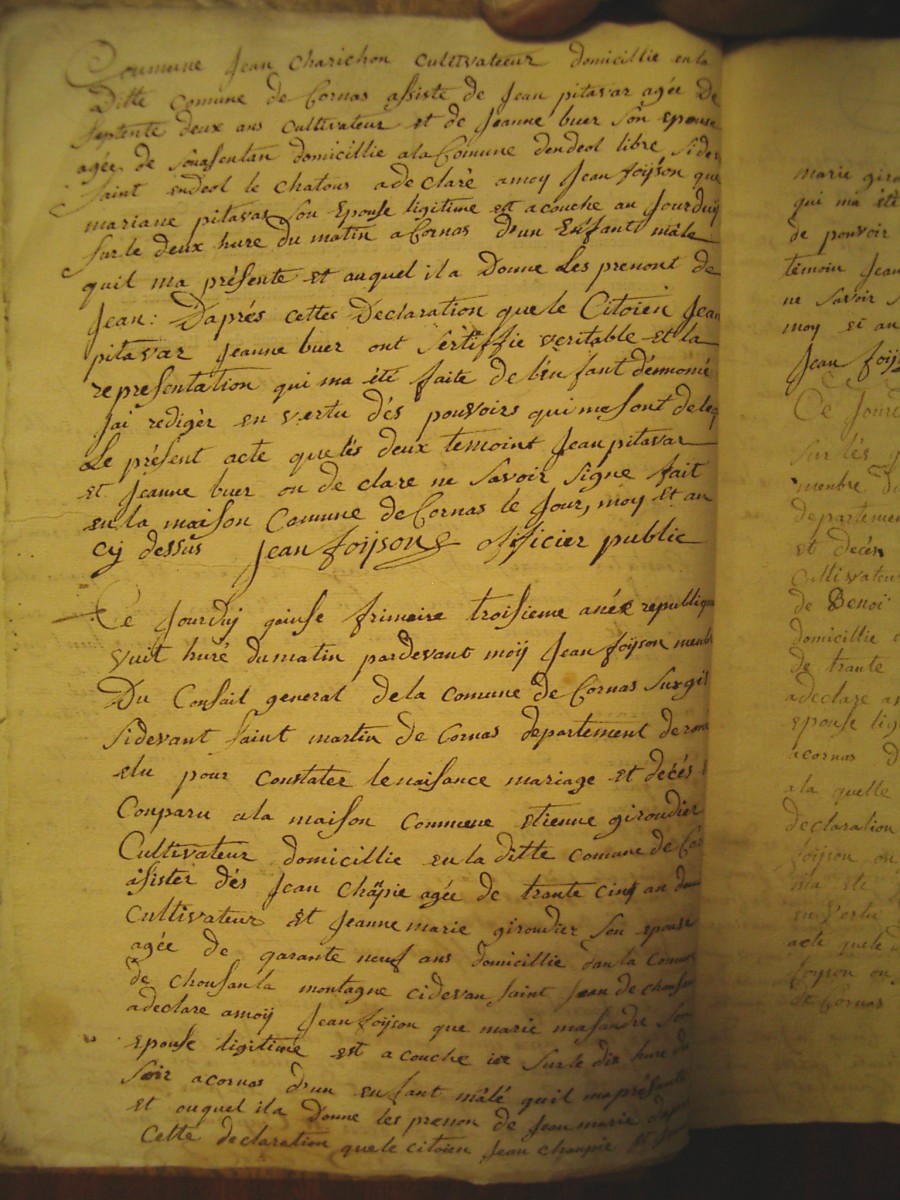 Coumune Jean Charichon cultivateur domicillie en la
Ditte comune de Cornas assiste de Jean pitavar agée de
septente deux ans cultivateur et de Jeanne buer son epouse
agée de souasentan domicillie a la Comune dendeol libre sider
saint endeol le chatous a declaré a moy Jean foijson que
mariane pitavar son epouse ligitime est a couche au Jourduij
sur le deux hure du matin a Cornas d'un Enfant mâle
quil ma présente et auquel il a Donne Les prenont de
Jean: Daprés cettes Declaration que le Citoien Jean
pitavar Jeanne buer ont sertiffie veritable et la
representation qui ma été faite de l'enfant dennomé
Jai rediger en vertu dés pouvoirs qui me sont deleq
Le présent acte que lés deux temoint Jean pitavar
et Jeanne buer on de clare ne savoir signe fait
en la maison Comune de Cornas le Jour, moy et an
cy dessus Jean foijson officier public
Ce Jourduij gainse frimaire troisieme anée republique
vuit huré du matin pardevant moij Jean foijson membr
Du Consait general de la comune de Cornas
sidevant saint martin de Cornas departement de ron
elu pour constater le naisance mariage et décés
Conparu a la maison Commune etienne giroudier
Cultivateur domicillie en la ditte comune de Cor
assister dés Jean Chapie agée de trante cinq an
cultivateur et Jeanne marie giroudier son epouse
agée de garante neuf ans domicillie dan la Comun
de chousan la montagne cidevan saint Jean de chousan
a declare a moij Jean foijson que marie masandre son
epouse ligitime est a couche ier sur le dix hure du
soir a cornas d'un enfant mâlé quil ma présente
et auquel il a Donne les prenon de Jean marie
Cette declaration que le citoien Jean Chaupie et

marie giro
qui ma été
de pouvoir
temoin Jean
ne savoir s
moy et an
Jean foijs
Ce Jour
sur lés
menbre Du
departemen
et décés
Cultivateur
de Benoi
domicillie
de trante
a declare a
epouse lig
a cornas d
a la quelle
declaration
foijson on
ma ete
en vertu
acte quele
foijson on
de Cornas